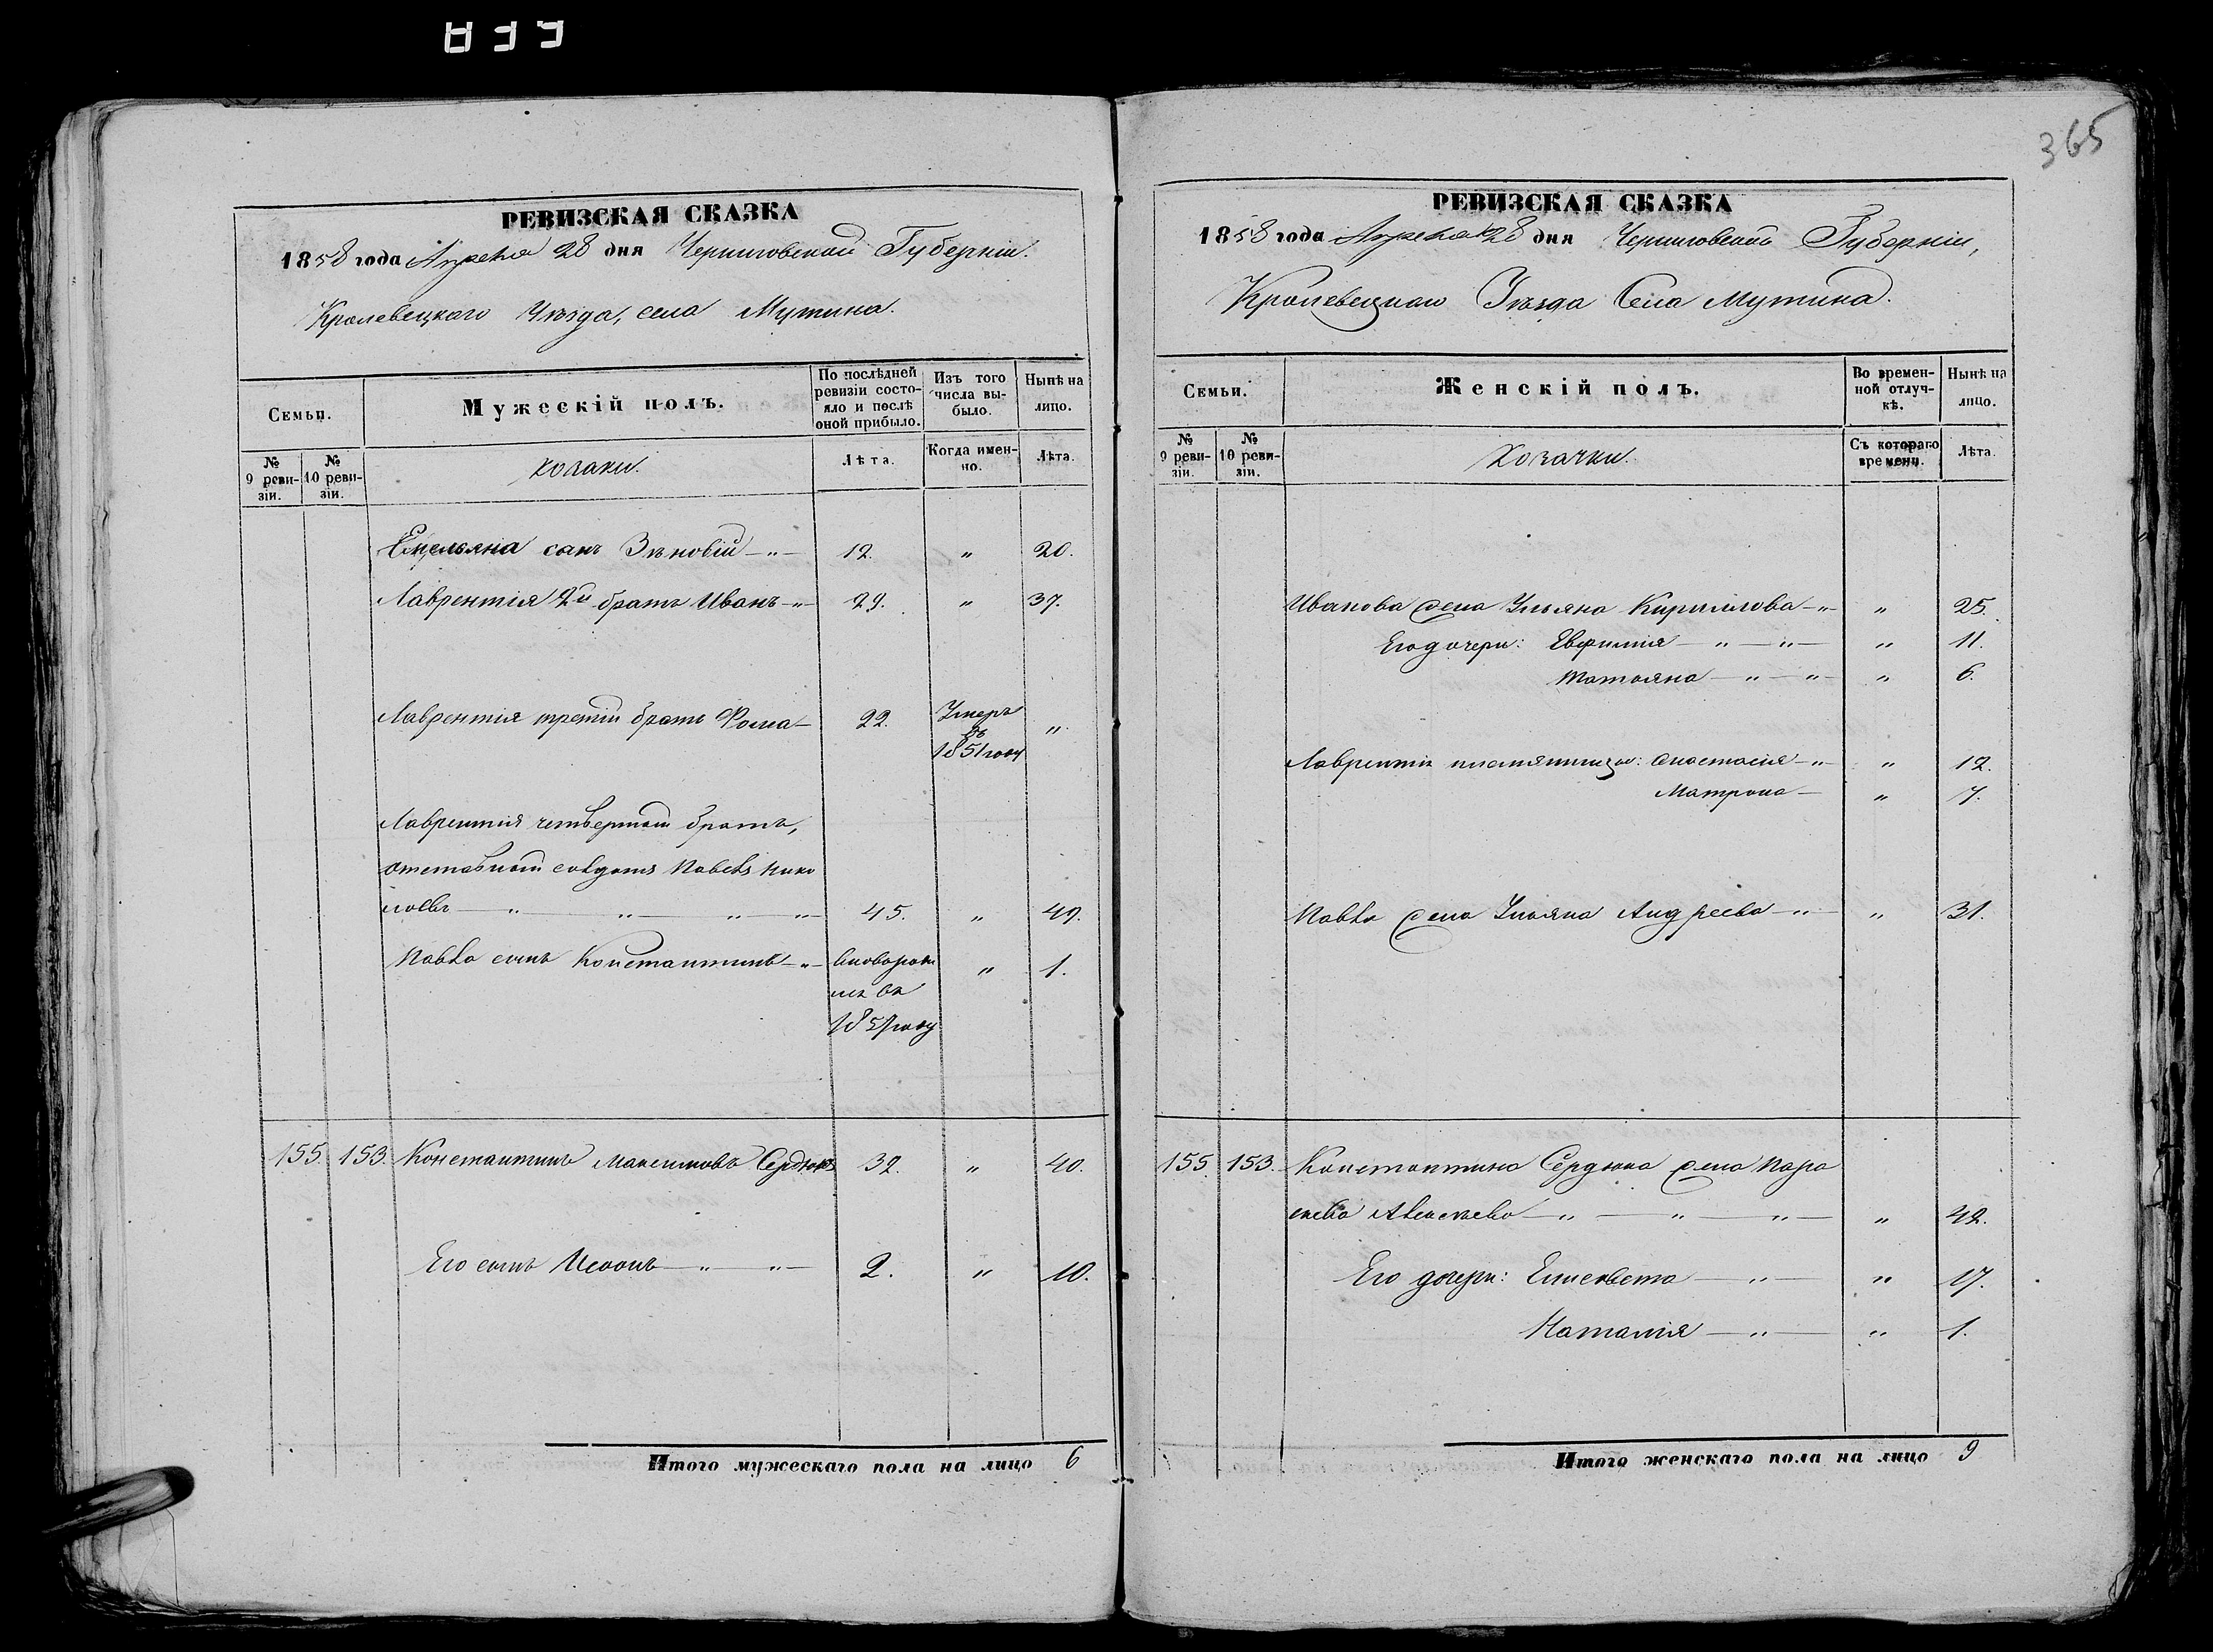 833
365
РЕВИЗСКАЯ СКАЗКА
1858 года Апреля 28 дня Черниговской Губерніи.
Кролевецкаго Уѣзда, села Мутина.
Семьи.
Мужескій полъ.
По послѣдней ревизіи состояло и послѣ оной прибыло.
Изъ того числа выбыло.
Нынѣ на лицо.
№ 9 ревизіи.
№ 10 ревизіи.
Козаки.
Лѣта.
Когда именно.
Лѣта.
Емельяна сынъ Зѣновій —"— 12. " 20.
Лаврентія 2й братъ Иванъ —"— 29. " 37.
Лаврентія третій братъ Фома — 22. Умеръ въ 1851 году ".
Лаврентія четвертый братъ,
отставной солдатъ Павелъ Нико
лаевъ —"—"—"—"— 45. " 49.
Павла сынъ Константинъ —"— " 1.
155. 153. Константинъ Максимовъ Сердюкъ 32. " 40.
Его сынъ —"—"— 2. " 10.
Итого мужескаго пола на лицо 6
РЕВИЗСКАЯ СКАЗКА
1858 года Апреля 28 дня Черниговской Губерніи,
Кролевецкаго Уѣзда Села Мутина.
Семьи.
Женскій полъ.
Во временной отлучкѣ.
Нынѣ на лицо.
№ 9 ревизіи.
№ 10 ревизіи.
Козачки.
Съ котораго времени.
Лѣта.
Иванова жена Ульяна Кириллова —"— " 25.
Его дочери: Евфимія —"—"— " 11.
Татьяна —"—"— " 6.
Лаврентія племянницы: Анастасія —"— " 12.
Матрона — " 7.
Павла жена Ульяна Андреева —"— " 31.
155. 153. Константина Сердюка жена Пара
скева Алексѣева —"—"—"— " 42.
Его дочери: Елисавета —"— " 17.
Наталія —"— " 1.
Итого женскаго пола на лицо 9